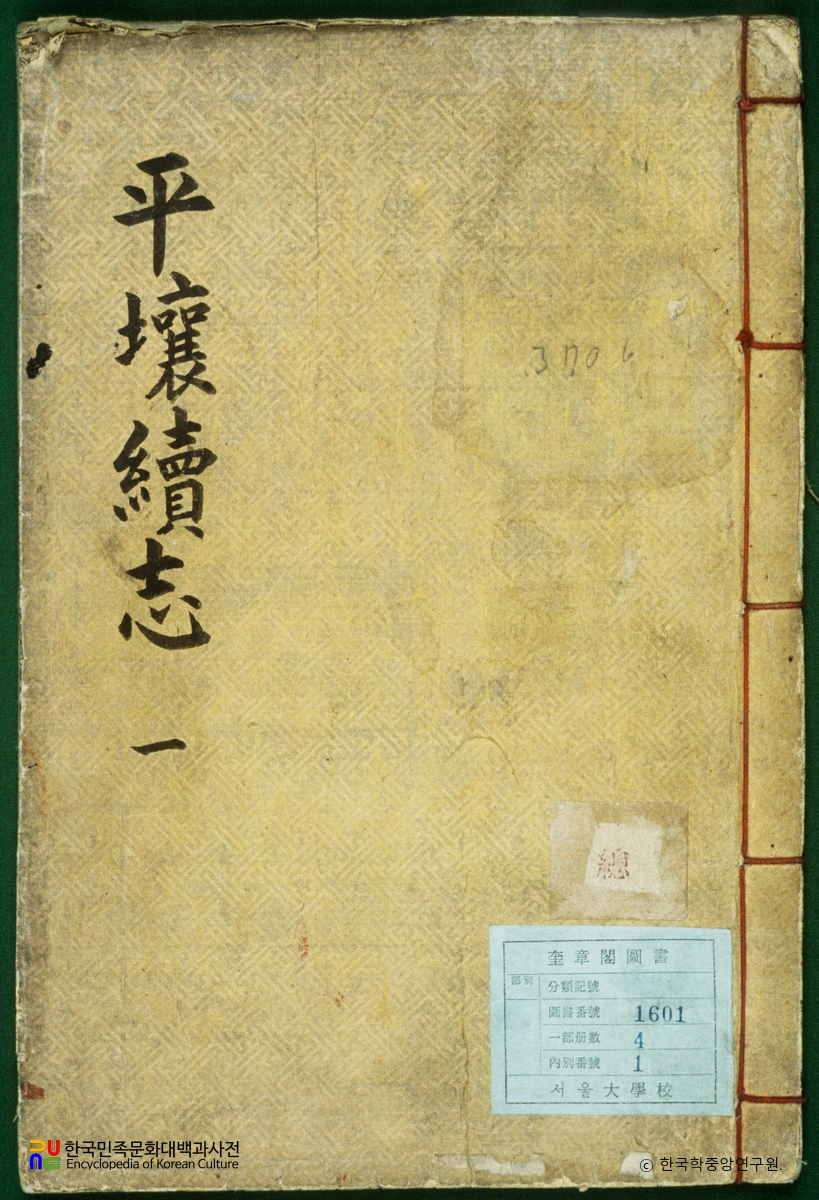 平壤續志 一
3706
總
奎章閣圖書
部別
分類記號
圖書番號 1601
一部册數 4
內別番號 1
서울大學校
한국민족문화대백과사전
Encyclopedia of Korean Culture
ⓒ 한국학중앙연구원